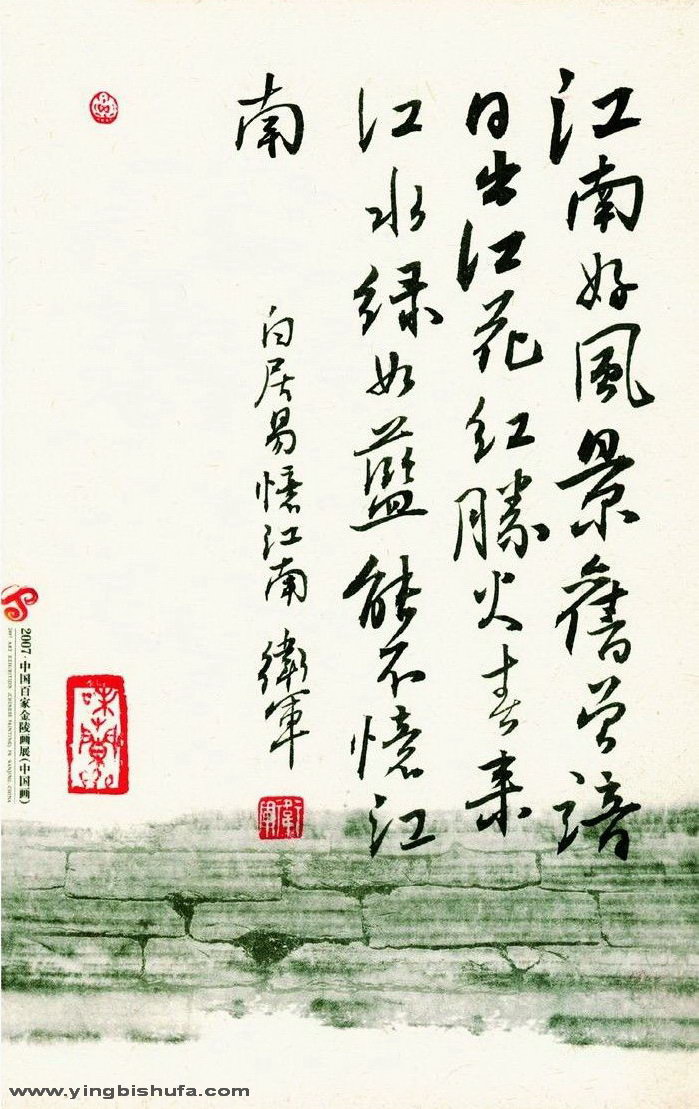 江南好風景舊曾諳
日出江花红勝火春来
江水绿如藍能不憶江
南
白居易憶江南 衛軍
衛軍
2007·中国百家金陵画展(中国画)
www.yingbishufa.com